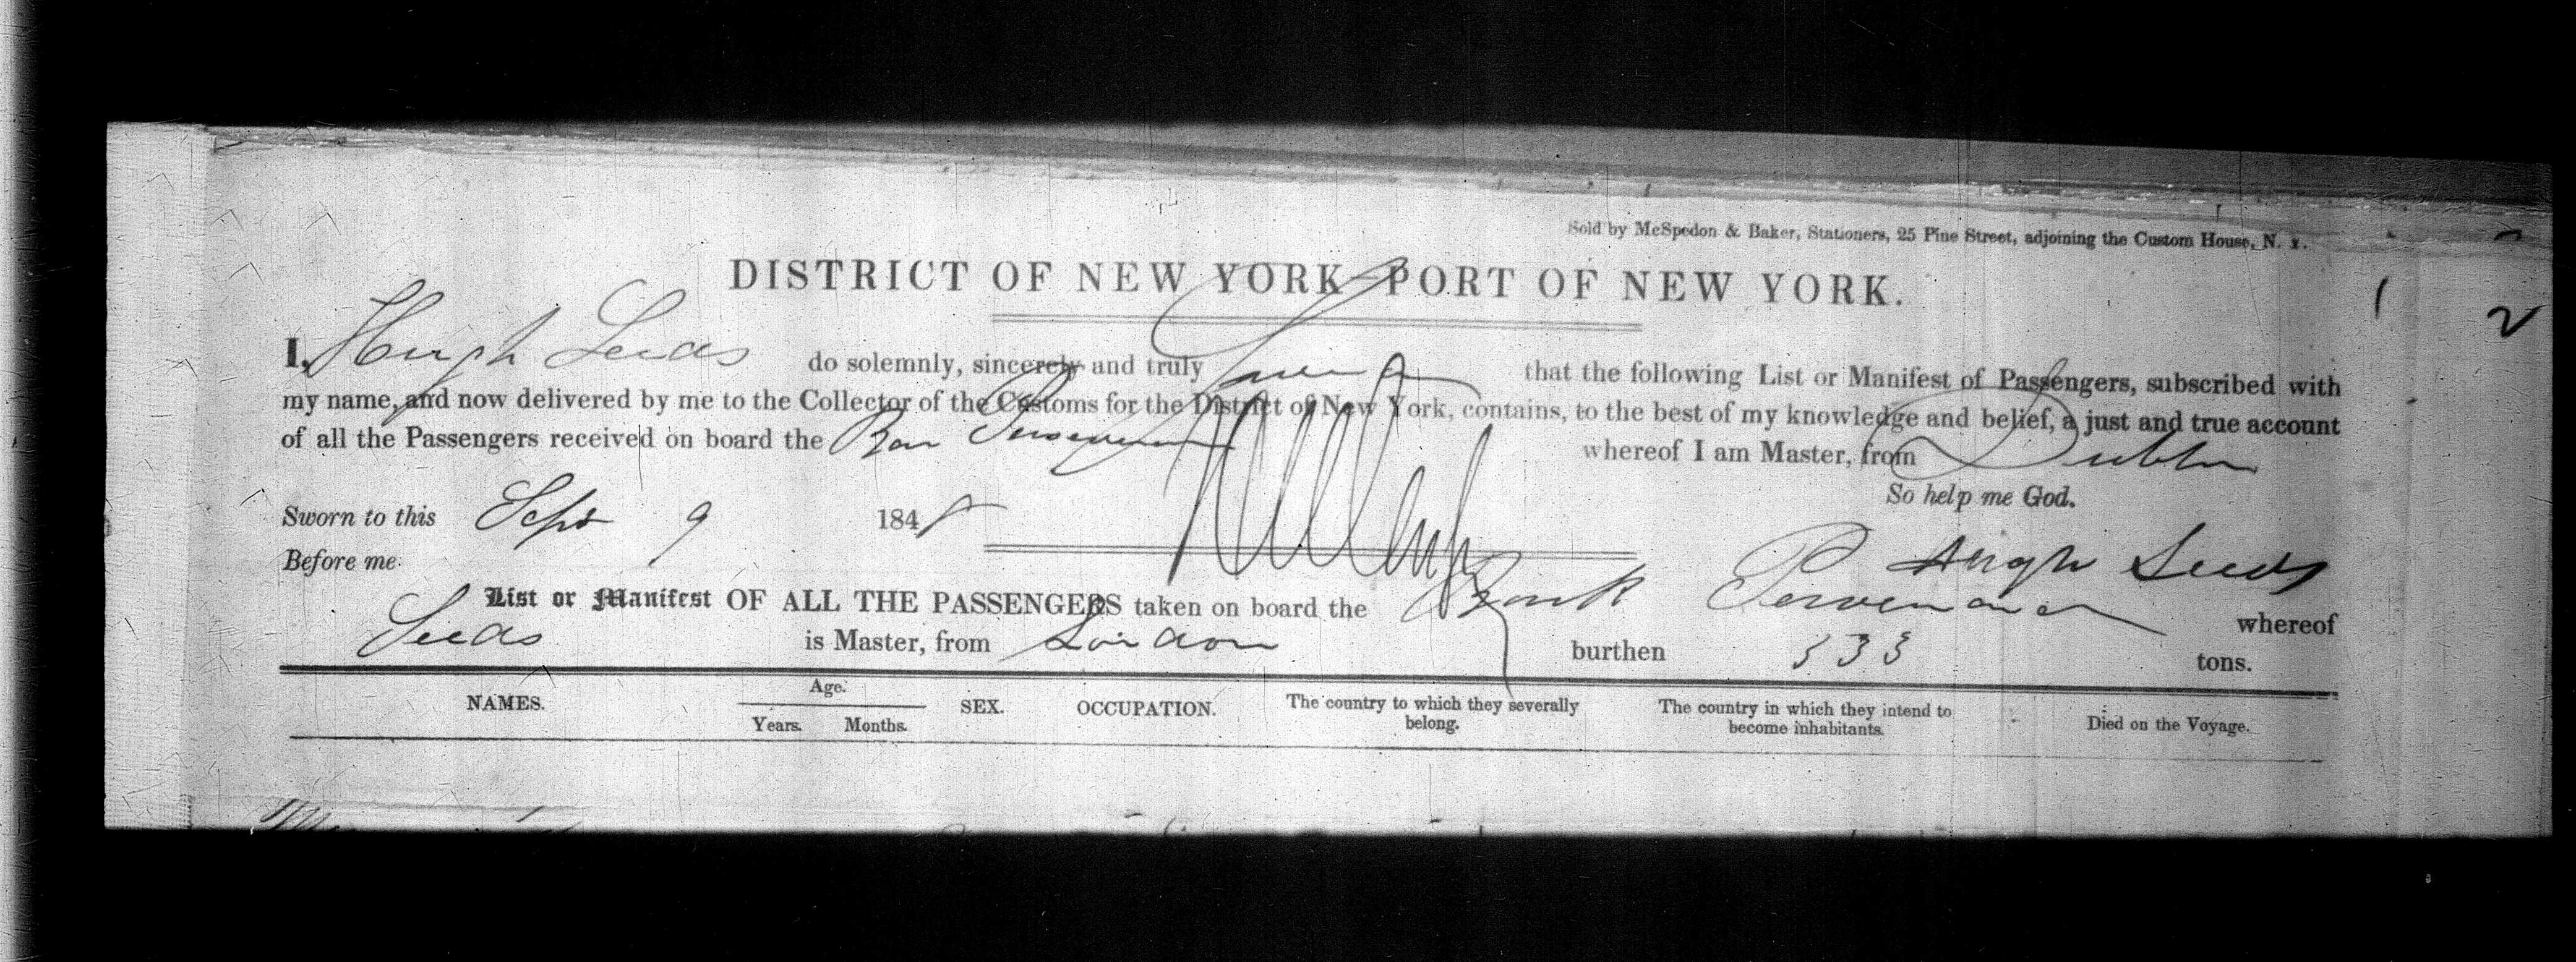 Sold by McSpedon & Baker, Stationers, 25 Pine Street, adjoining the Custom House, N. Y.
DISTRICT OF NEW YORK—PORT OF NEW YORK.
1
2
I, Hugh Leeds do solemnly, sincerely and truly Swear that the following List or Manifest of Passengers, subscribed with
my name, and now delivered by me to the Collector of the Customs for the District of New York, contains, to the best of my knowledge and belief, a just and true account
of all the Passengers received on board the Bar whereof I am Master, from Dublin
So help me God.
Sworn to this Sept 9 184
Hugh Leeds
Before me
List or Manifest OF ALL THE PASSENGERS taken on board the Bark whereof
Leeds is Master, from London burthen 533 tons.
NAMES. Age. SEX. OCCUPATION. The country to which they severally The country in which they intend to Died on the Voyage.
Years. Months. belong. become inhabitants.